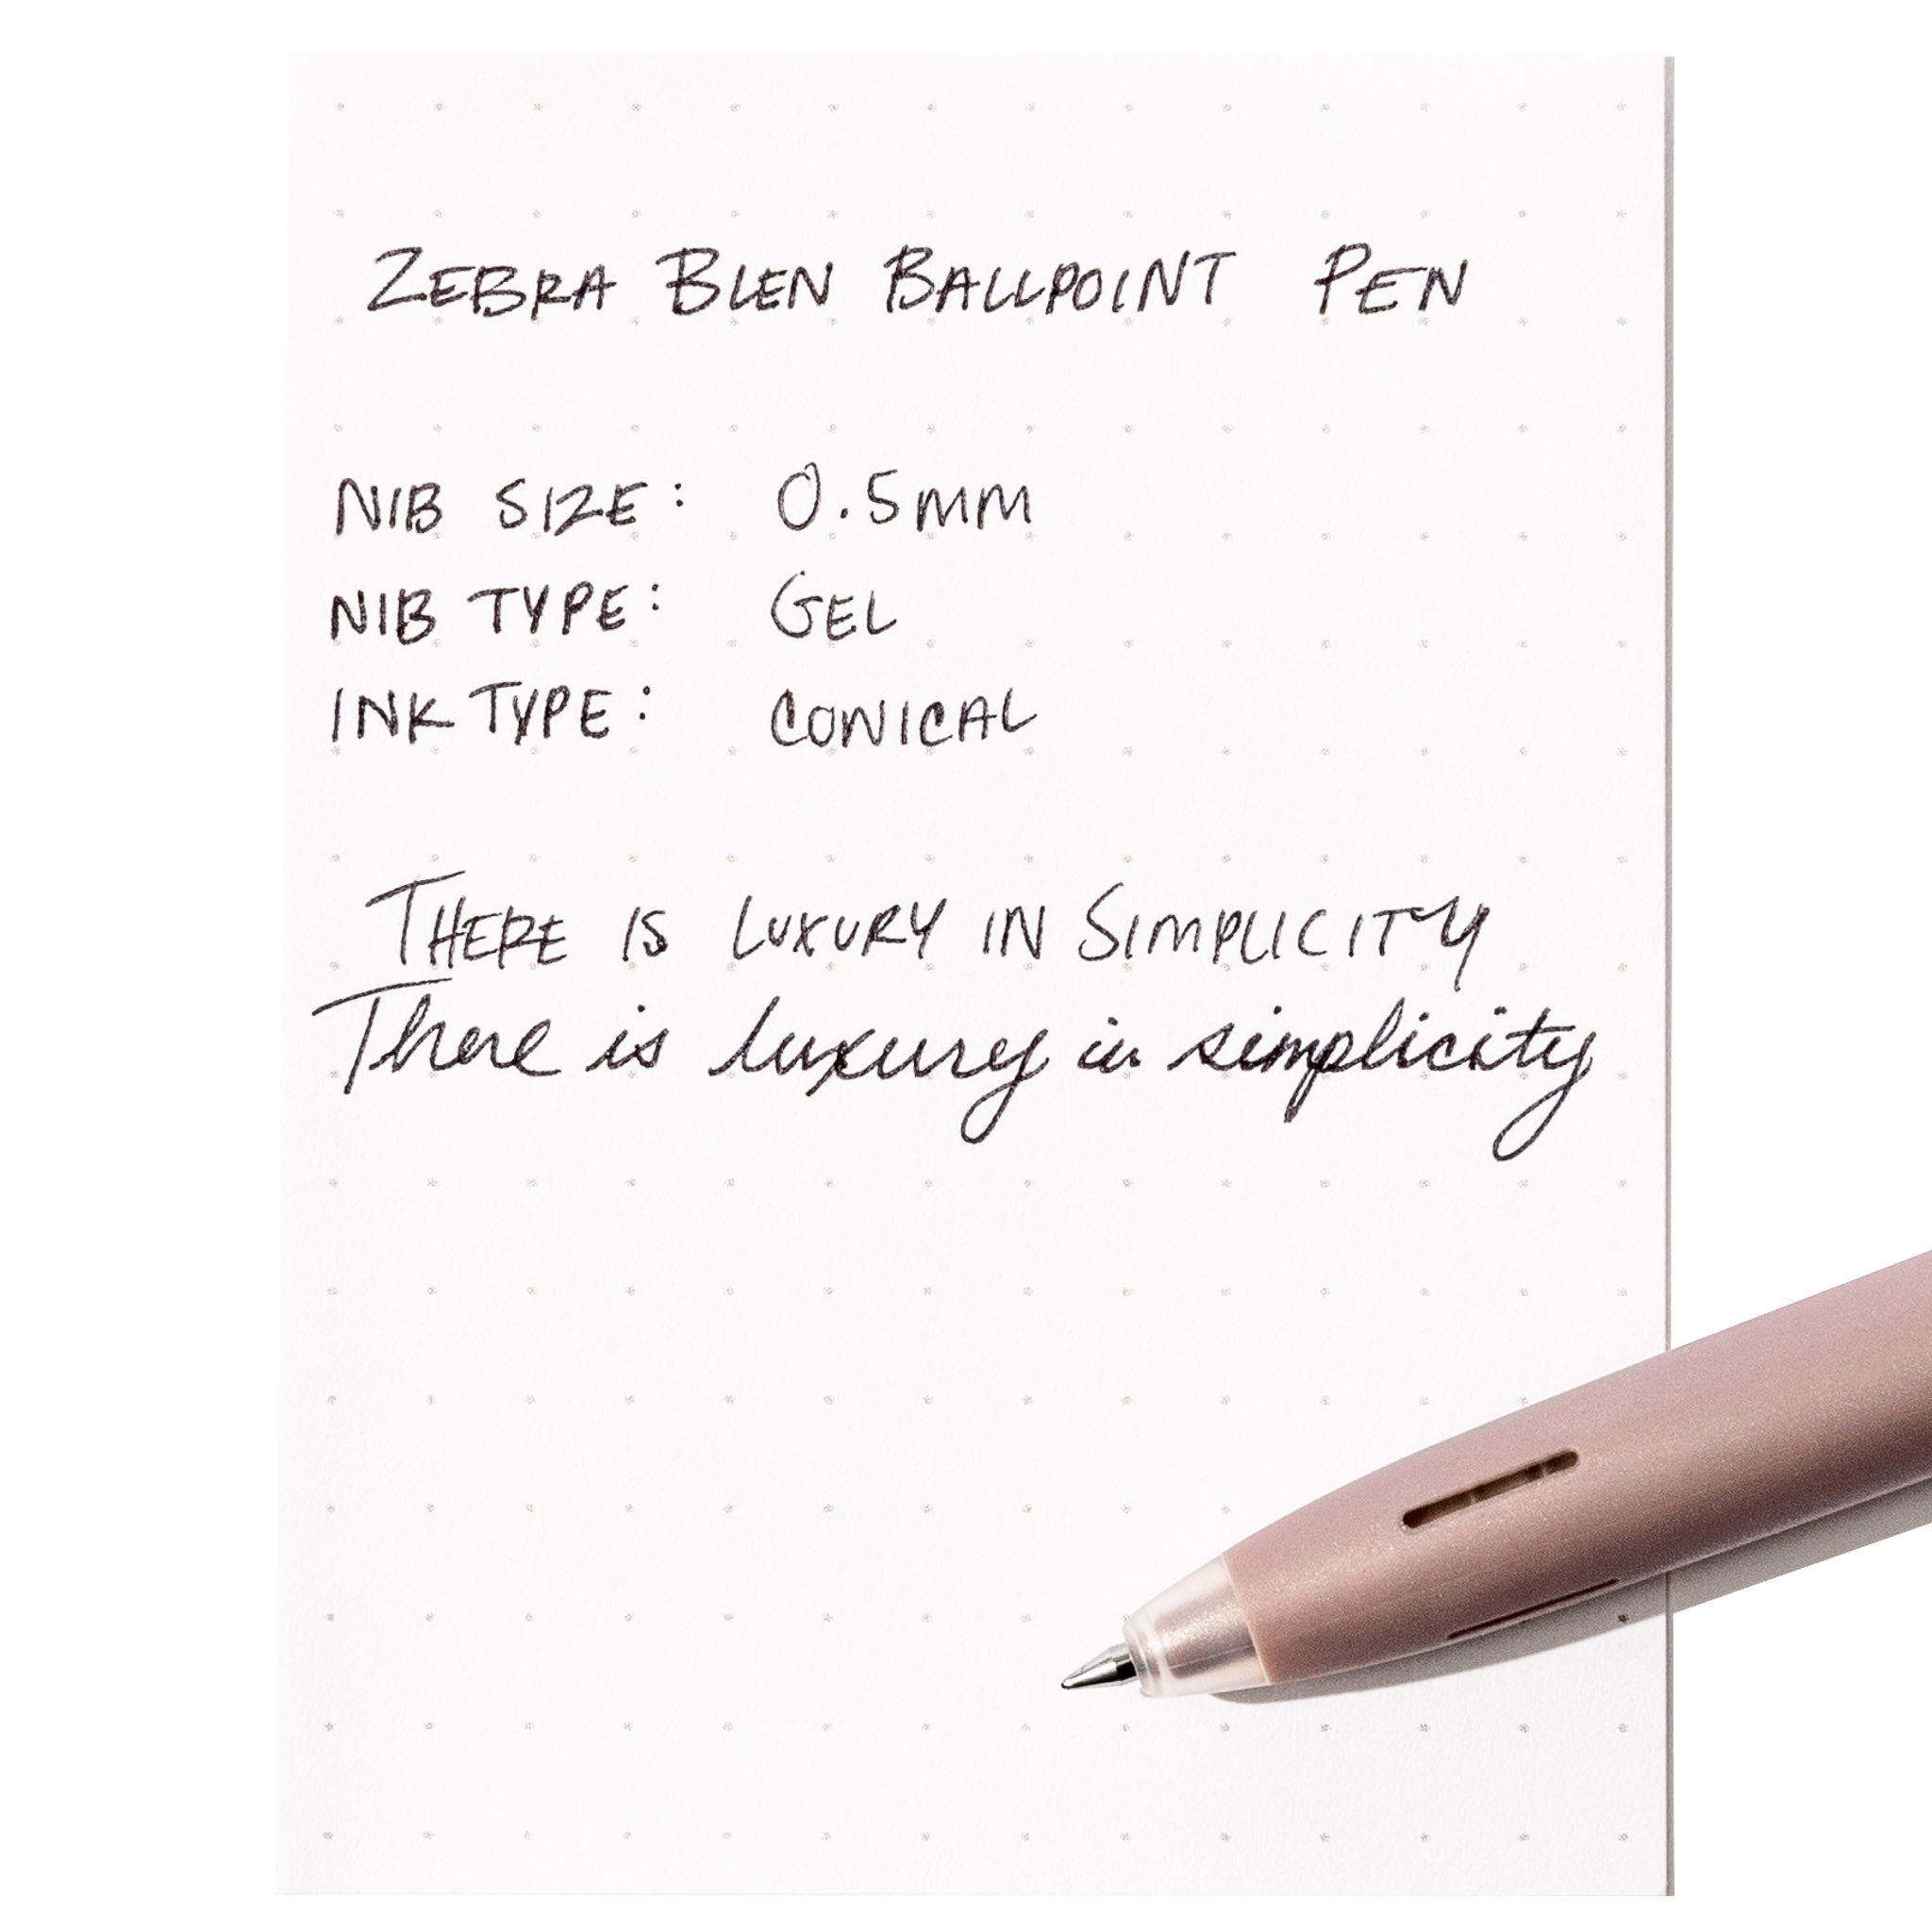 ZEBRA BLEN BALLPOINT PEN
NIB SIZE: 0.5MM
NIB TYPE: GEL
INK TYPE: CONICAL
THERE IS LUXURY IN SIMPLICITY
There is luxury in simplicity